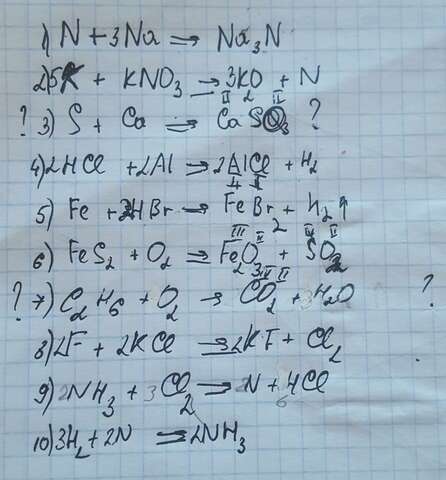 1) N + 3Na ⇒ Na₃N
2) 5K + KNO₃ → 3K₂O + N
? 3) S + Ca ⇒ CaSO₃ ?
4) 2HCl + 2Al ⇒ 2AlCl + H₂
5) Fe + 2HBr → FeBr₂ + H₂↑
6) FeS₂ + O₂ ⇒ Fe₂O₃ + SO₂
? 7) C₂H₆ + O₂ → CO₂ + 3H₂O ?
8) 2F + 2KCl ⇒ 2KF + Cl₂
9) 2NH₃ + 3Cl₂ → 2N + 6HCl
10) 3H₂ + 2N ⇒ 2NH₃